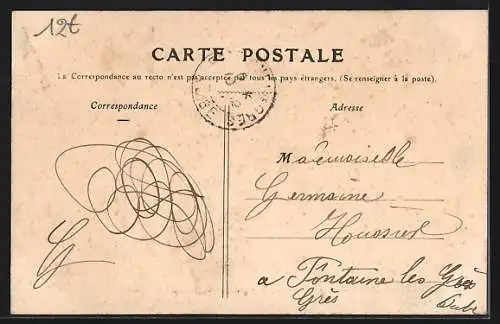 12t
CARTE POSTALE
La Correspondance au recto n'est pas acceptée par tous les pays étrangers. (Se renseigner à la poste).
Correspondance
Adresse
Mademoiselle
Germaine
a Fontaine les Grès
Grès
Aube